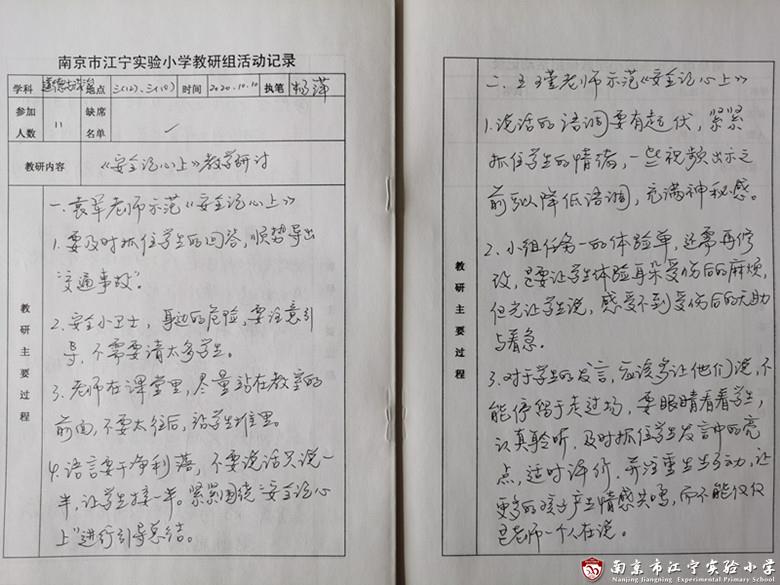 南京市江宁实验小学教研组活动记录
学科 道德与法治 地点 三(12)、三(10) 时间 2020.10.10 执笔 杨萍
参加人数 11 缺席名单 /
教研内容 《安全记心上》教学研讨
教研主要过程
一、袁军老师示范《安全记心上》
1.要及时抓住学生的回答,顺势导出
"交通事故"。
2.安全小卫士,身边的危险,要注意引
导,不需要请太多学生。
3.老师在课堂里,尽量站在教室的
前面,不要太往后,站学生堆里。
4.语言要干净利落,不要说话只说一
半,让学生接一半。紧紧围绕"安全记心
上"进行引导总结。
教研主要过程
二、王瑾老师示范《安全记心上》
1.说话的语调要有起伏,紧紧
抓住学生的情绪,一些视频出示之
前可以降低语调,充满神秘感。
2.小组任务一的体验单,还需再修
改,是要让学生体验耳朵受伤后的麻烦,
但光让学生说,感受不到受伤后的无助
与着急。
3.对于学生的发言,应该多让他们说,不
能停留于走过场,要眼睛看着学生,
认真聆听,及时抓住学生发言中的亮
点,适时评价,并注重生生互动,让
更多的孩子产生情感共鸣,而不能仅仅
是老师一个人在说。
南京市江宁实验小学
Nanjing Jiangning Experimental Primary School